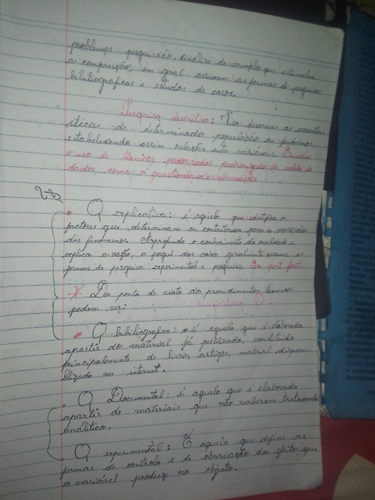 problemas pesquisado, análise de exemplo que estimula
a compreensão, em geral assumem as formas de pesquisas
bibliográficas e estudos de casos.
Pesquisa descritiva: Visa descrever as caracte
rísticas de determinada população ou fenômeno
estabelecendo assim relações entre variáveis. Envolve
o uso de técnicas padronizadas de coleta de
dados como o questionário e observação.
O explicativa: é aquela que identifica os
factores que determinam ou contribuem para a ocorrência
dos fenômenos. Aprofunda o conhecimento da realidade e
explica a razão, o porquê das coisas geralmente assume as
formas de pesquisa experimental e pesquisa Ex-post-facto
Do ponto de vista dos procedimentos técnicos
podem ser:
O bibliografica: é aquela que é elaborada
apartir do material já publicado, constituido
principalmente de livros, artigos, material disponi
bilizado na internet.
O Documental: é aquela que é elaborada
apartir de materiais que não receberam tratamento
analitico.
O experimental: É aquela que define as
formas de controle e de observação dos efeitos que
a variável produz no objeto.